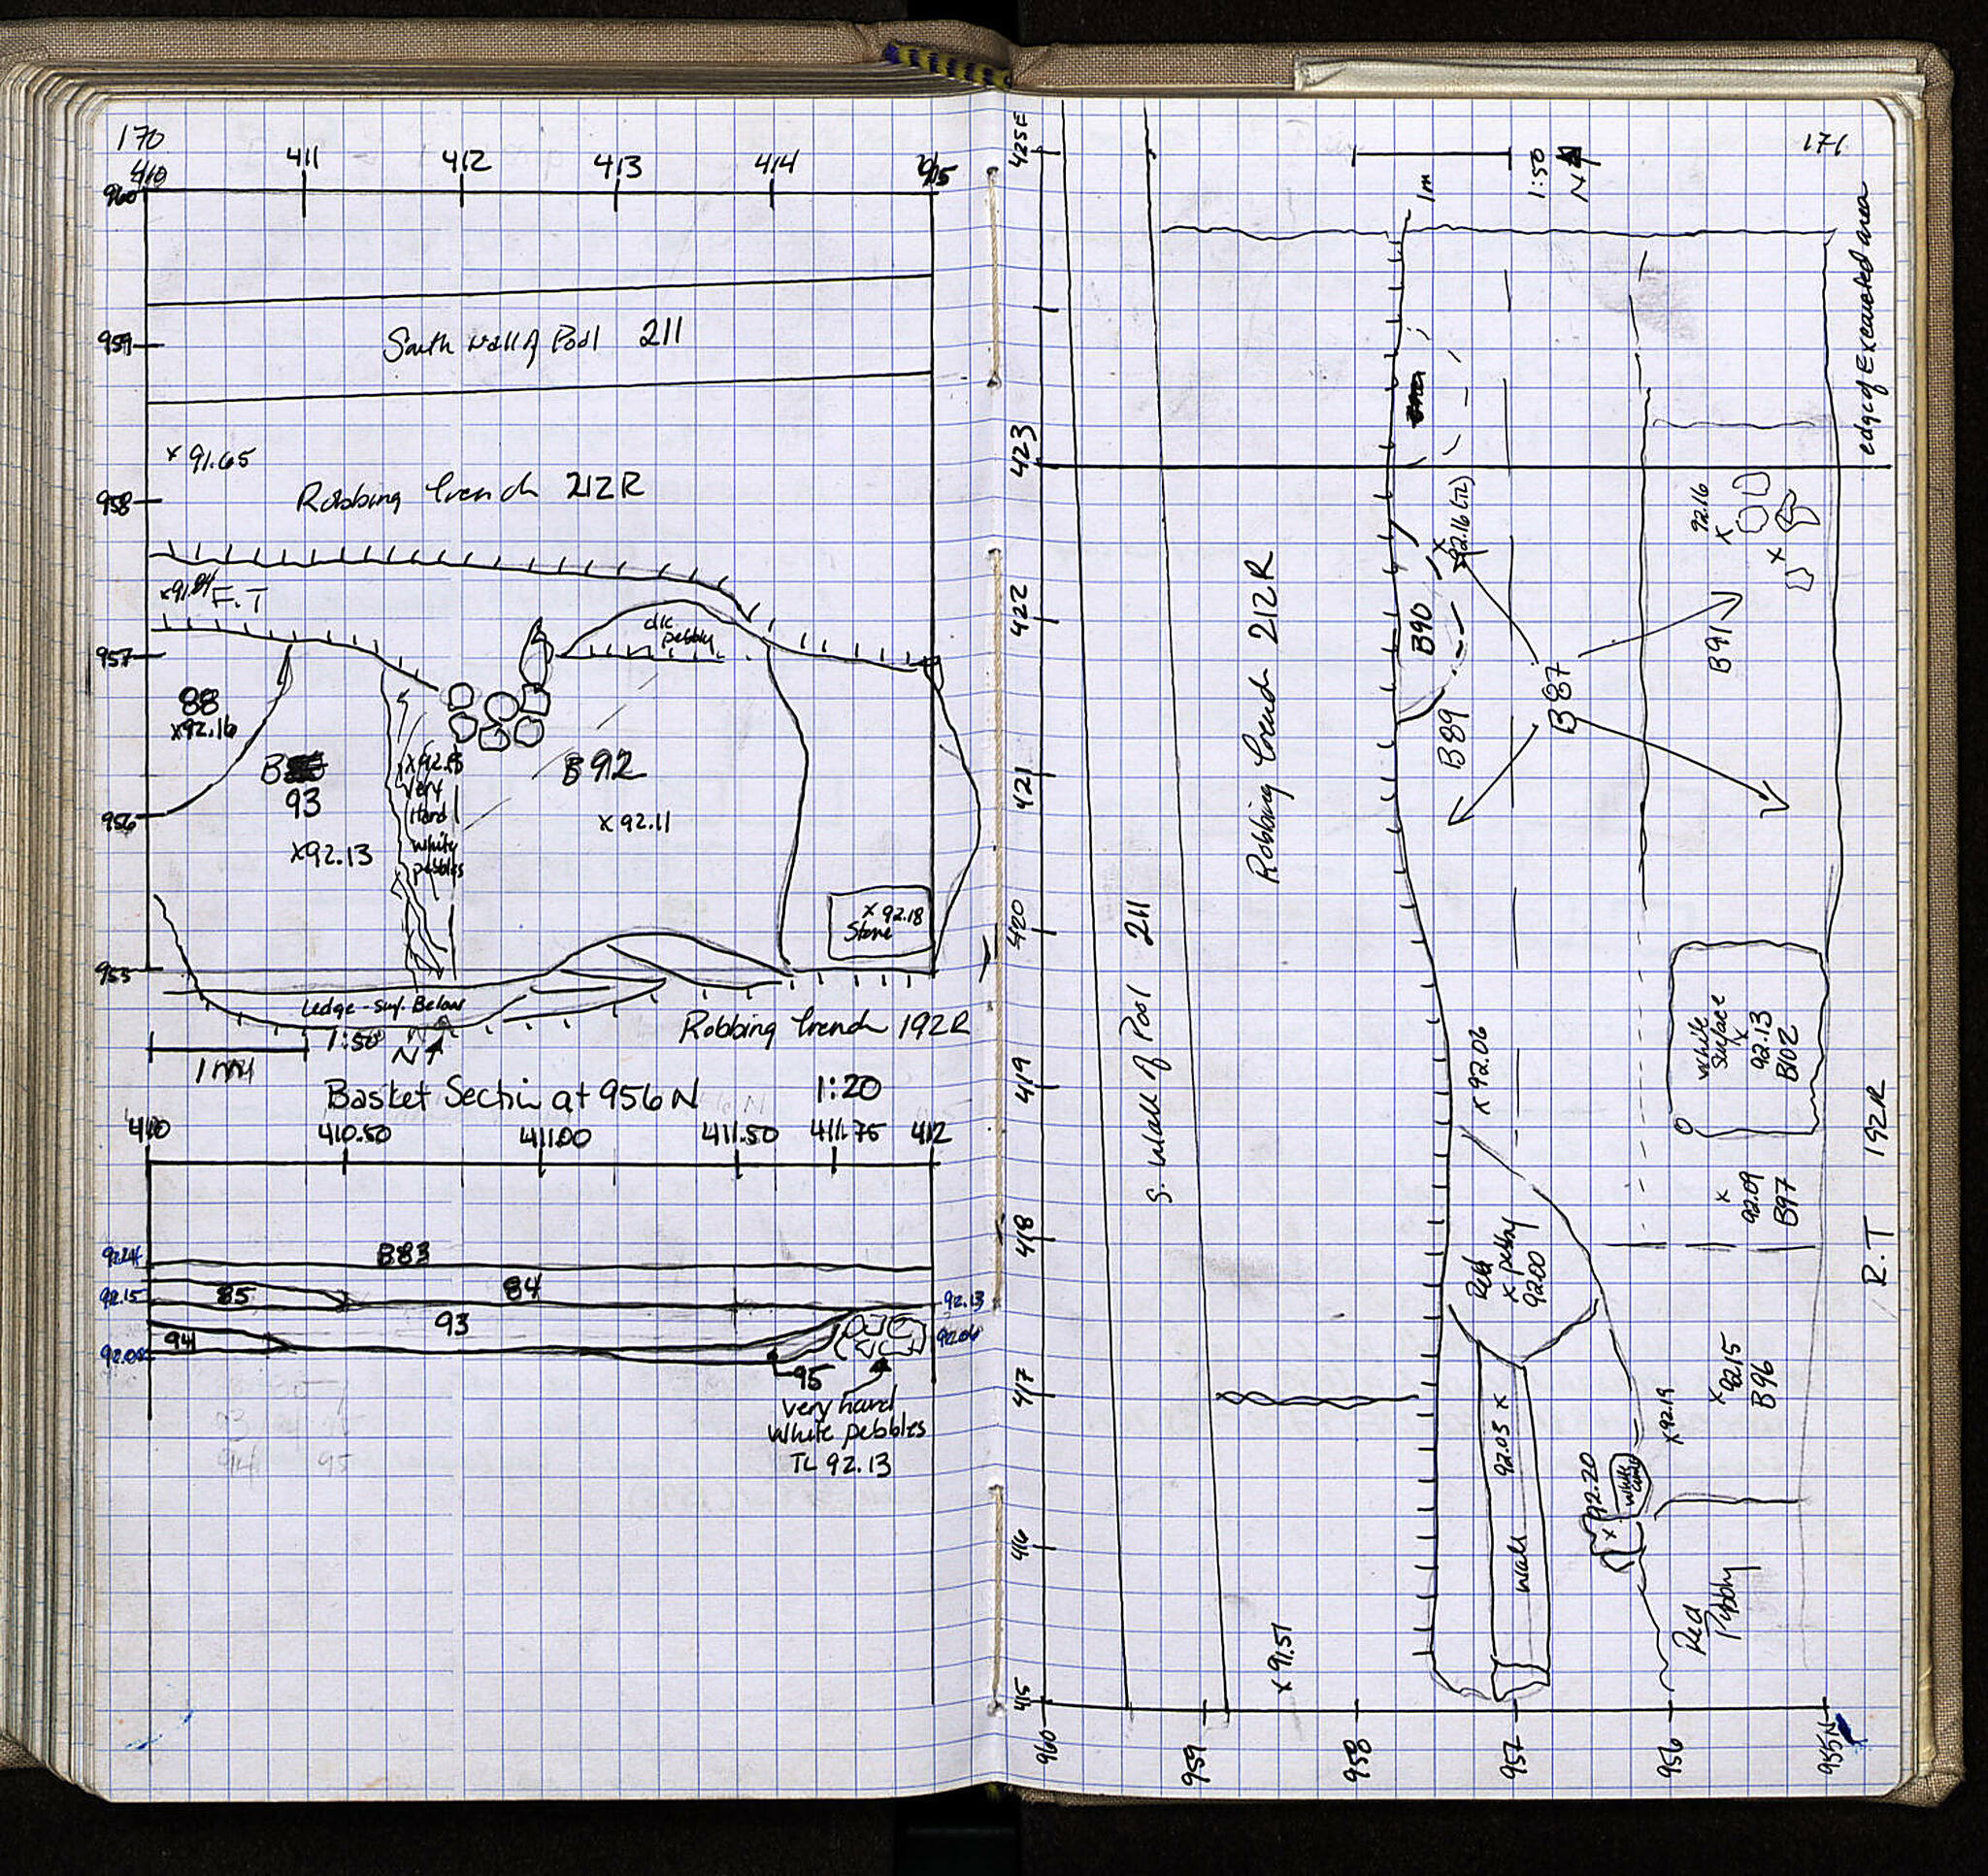 170
410 411 412 413 414 415
960
959
South Wall of Pool 211
x 91.65
958
Robbing Trench 212R
x 91.84 F.T
dk. pebbly
957
88
x92.16
B
93
very
Hard
white
pebbles
B92
956
x 92.11
x92.13
x 92.18
Stone
Ledge - surf. Below
1:50
N
Robbing Trench 192R
1 m
Basket Section at 956 N 1:20
410 410.50 411.00 411.50 411.75 412
B83
85
84
92.15
92.13
93
94
92.06
95
very hard
White pebbles
TL 92.13
171
425E
423
422
421
420
419
418
417
416
415
960
959
958
957
956
955N
1m
1:50
N
edge of Excavated area
S. Wall of Pool 211
Robbing Trench 212R
x 91.51
B90
92.16 (TL)
B89
B87
B91
92.16
x
x
x 92.06
White
Surface
x
92.13
B102
R.T 192R
x
92.09
B97
Red
x pebbly
92.00
x
92.15
B96
92.03 x
Wall
x92.19
92.20
x
Red
Pebbly